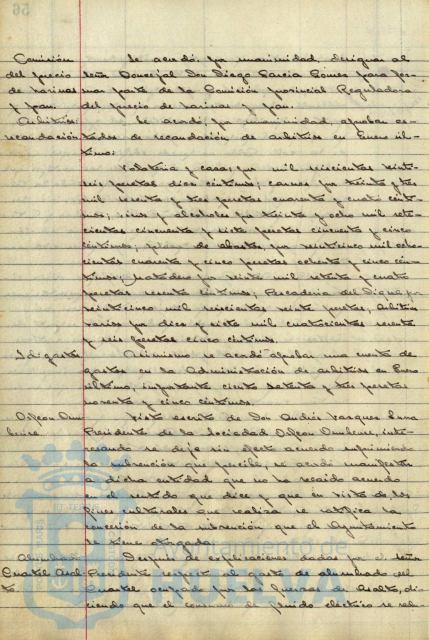 Comisión Se acordó, por unanimidad, designar al
del precio señor Concejal Don Diego Garcia Gómez para for-
de harinas mar parte de la Comisión provincial Reguladora
y pan. del precio de harinas y pan.
Arbitrios: Se acordó, por unanimidad, aprobar es-
recaudación tados de recaudación de arbitrios en Enero úl-
timo:
Volateria y caza, por mil seiscientas veinti-
seis pesetas diez céntimos; carnes por treinta y tres
mil sesenta y tres pesetas cuarenta y cuatro cénti-
mos; vinos y alcoholes por treinta y ocho mil sete-
cientas cincuenta y siete pesetas cincuenta y cinco
céntimos; plaza de abastos, por veinticinco mil ocho-
cientas cuarenta y cinco pesetas ochenta y cinco cén-
timos; Matadero por veinte mil setenta y cuatro
pesetas sesenta céntimos; Pescaderia del Dique por
veinticinco mil seiscientas siete pesetas; Arbitrios
varios por diez y siete mil cuatrocientas sesenta
y seis pesetas cinco céntimos.
Id. gastos Asimismo se acordó aprobar una cuenta de
gastos en la Administración de arbitrios en Enero
último, importante ciento setenta y tres pesetas
noventa y cinco céntimos.
Orfeon Onu- Visto escrito de Don Andrés Vazquez
bense. Presidente de la Sociedad Orfeon Onubense, inte-
resando se deje sin efecto acuerdo suprimiendo
la subvención que percibe, se acordó manifestar
a dicha entidad que no ha recaido acuerdo
en el sentido que dice y que en vista de los
fines culturales que realiza se ratifica la
concesión de la subvención que el Ayuntamiento
le tiene otorgada.
Alumbrado Despues de explicaciones dadas por el señor
Cuartel Asal- Presidente respecto al gasto de alumbrado del
to. Cuartel ocupado por las fuerzas de Asalto, di-
ciendo que el consumo de fluido electrico se